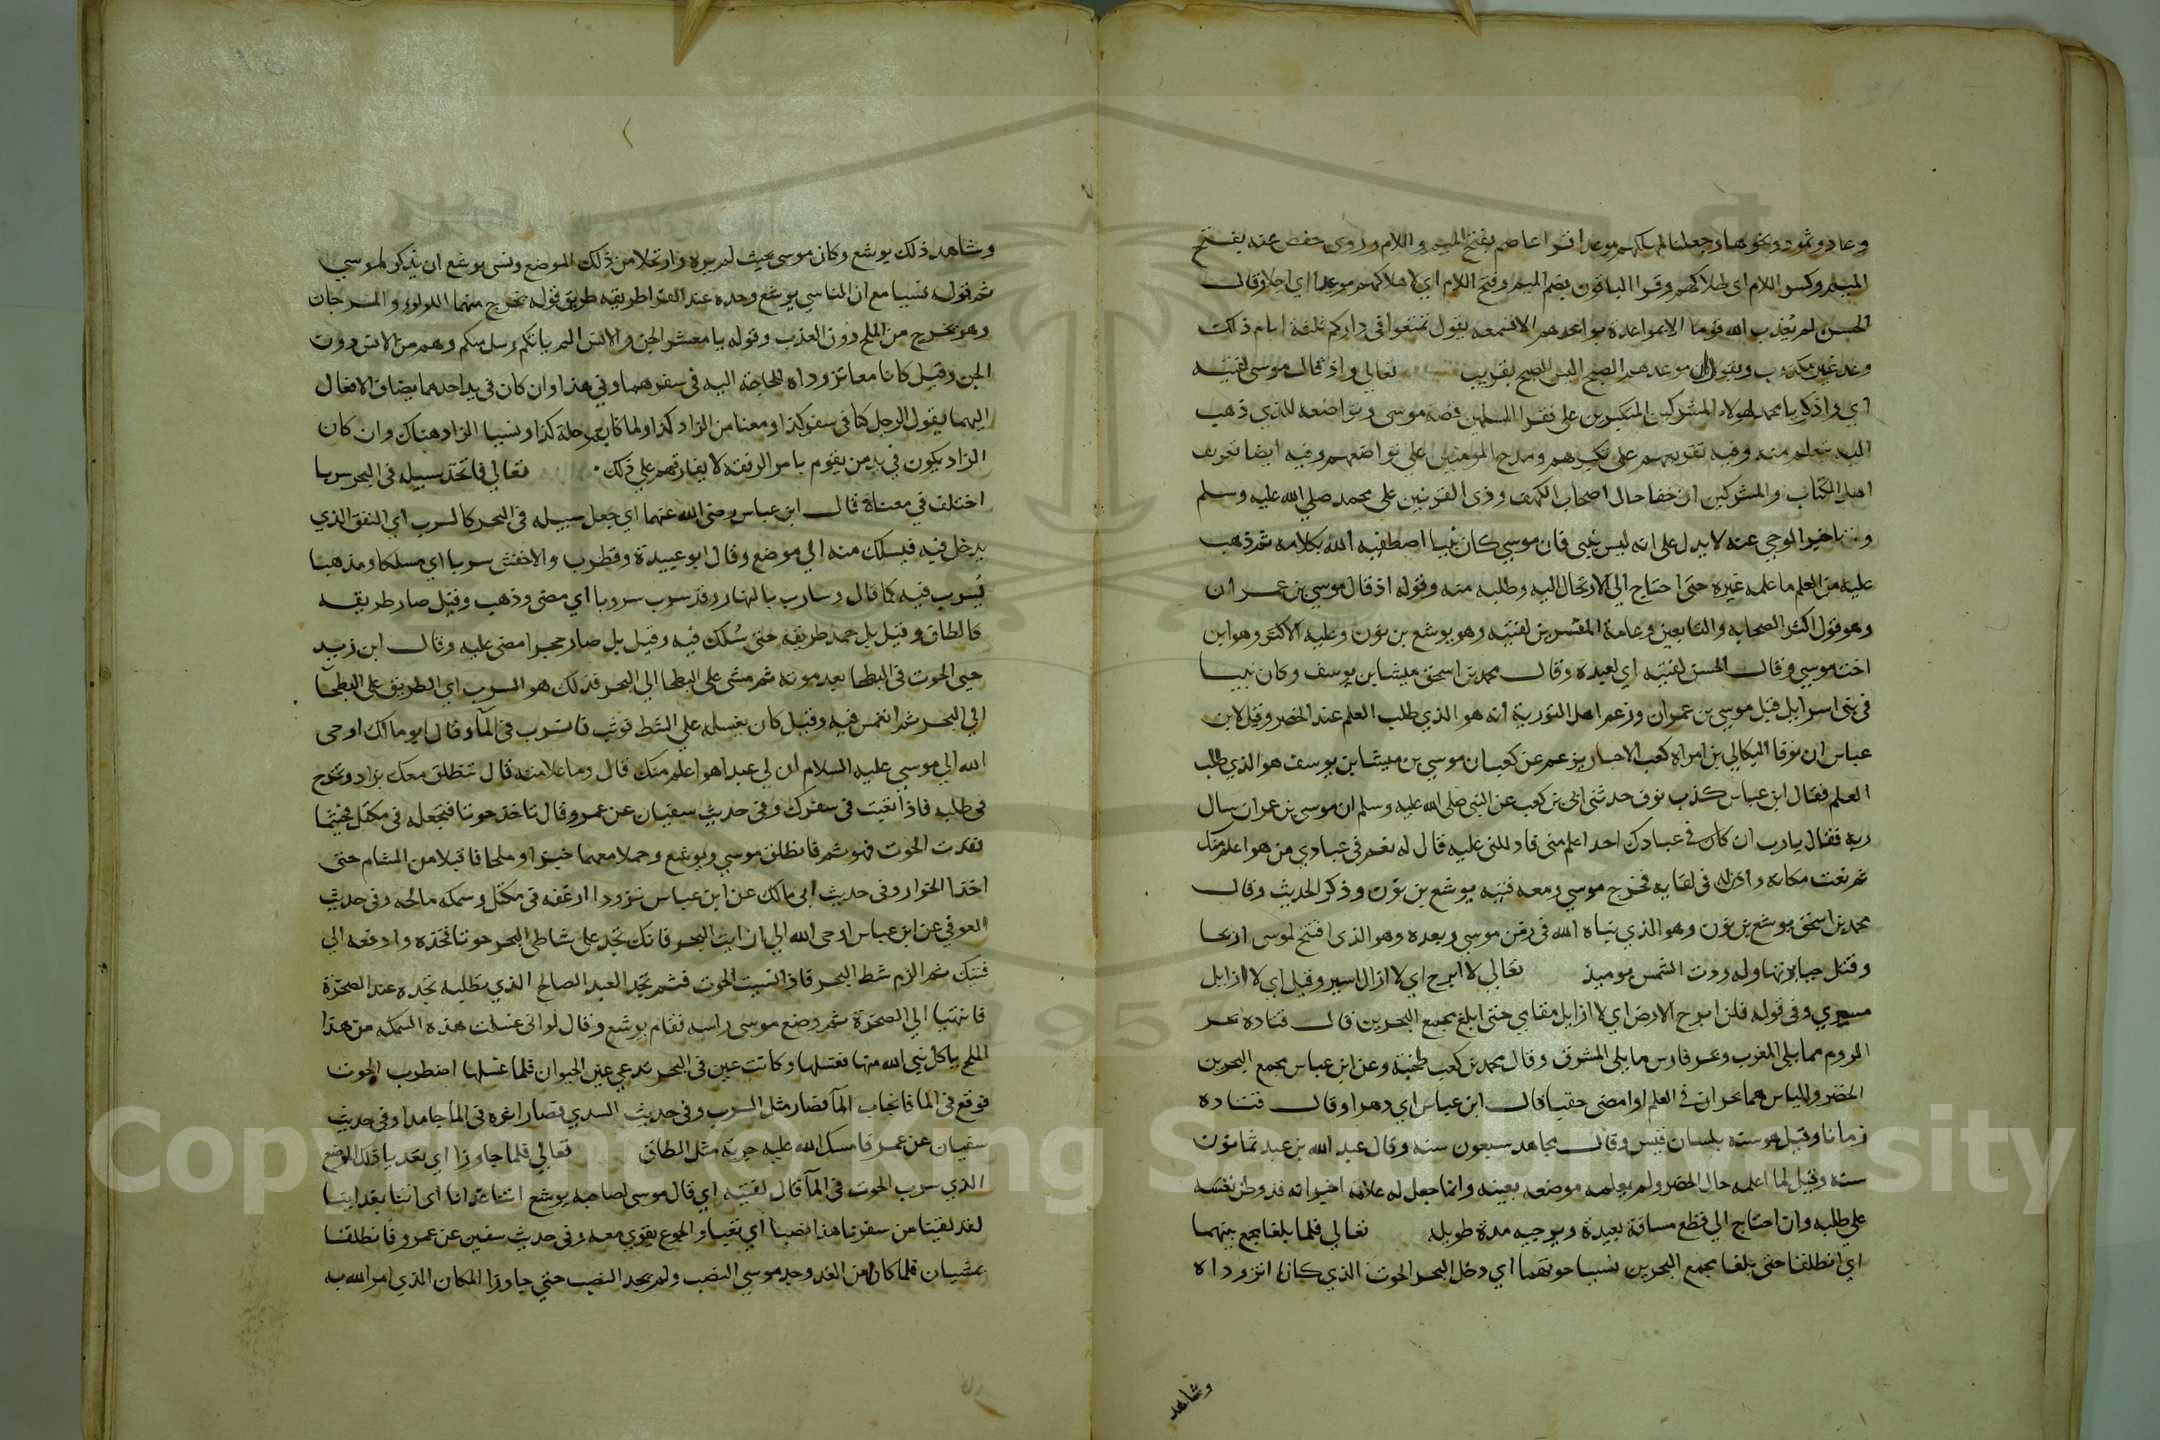 وعاد وثمود ونحوها وجعلنا لمهلكهم موعدا قرا عاصم بفتح الميم واللام وروى حفص عنه بفتح
الميم وكسر اللام اى هلاكهم وقرا الباقون بضم الميم وفتح اللام اي لاهلاكهم موعدا اي اجلا وقال
الحسن لم يعذب الله قوما الا بمواعدة يواعدهم الا تسمعه يقول تمتعوا في داركم ثلثة ايام ذلك
وعد غير مكذوب ويقول ان موعدهم الصبح اليس الصبح بقريب تعالي واذ قال موسى لفتيه
اي واذكر يا محمد لهولاء المشركين المتكبرين على فقرا المسلمين قصة موسى وتواضعه للذي ذهب
اليه يتعلم منه وفيه تقويمهم على تكبرهم ومدح المومنين علي تواضعهم وفيه ايضا تعريف
اهل الكتاب والمشركين ان خفا حال اصحاب الكهف وذى القرنين على محمد صلي الله عليه وسلم
وتاخير الوحي عنه لا يدل على انه ليس بنبى فان موسي كان نبيا اصطفيه الله بكلامه ثم ذهب
عليه من العلم ما علمه غيره حتى احتاج الي الارتحال اليه وطلبه منه وقوله اذ قال موسي بن عمران
وهو قول اكثر الصحابه والتابعين وعامة المفسرين لفتيه وهو يوشع بن نون وعليه الاكثر وهو ابن
اخت موسي وقال الحسن لفتيه اي لعبده وقال محمد بن اسحق ميشا بن يوسف وكان نبيا
فى بنى اسرايل قبل موسي بن عمران وزعم اهل التورية انه هو الذي طلب العلم عند الخضر وقيل لابن
عباس ان نوفا البكالي بن امراة كعب الاحبار يزعم عن كعب ان موسي بن ميشا بن يوسف هو الذي طلب
العلم فقال ابن عباس كذب نوف حدثني ابي بن كعب عن النبي صلى الله عليه وسلم ان موسي بن عمران سال
ربه فقال يا رب ان كان في عبادك احد اعلم مني فادللني عليه قال له نعم في عبادي من هو اعلم منك
ثم نعت مكانه واذن له في لقايه فخرج موسي ومعه فتيه يوشع بن نون وذكر الحديث وقال
محمد بن اسحق يوشع بن نون وهو الذي نباه الله في زمن موسي وبعده وهو الذى افتتح لموسى اريحا
وقتل جبابرتها وله ردت الشمس يوميذ تعالي لا ابرح اي لا ازال اسير وقيل اي لا ازايل
مسيري وفى قوله فلن ابرح الارض اي لا ازايل مقامي حتى ابلغ مجمع البحرين قال قتادة بحر
الروم مما يلي المغرب وبحر فارس ما يلي المشرق وقال محمد بن كعب طنجة وعن ابن عباس مجمع البحرين
الخضر والياس هما بحران في العلم او امضي حقبا قال ابن عباس اي دهرا وقال قتادة
زمانا وقيل هو سنة بلسان قيس وقال مجاهد سبعون سنة وقال عبد الله بن عبد ثمانون
سنة وقيل لما اعلمه حال الخضر ولم يعلمه موضعه بعينه وانما جعل له علامة اخبر انه قد وطن نفسه
علي طلبه وان احتاج الي قطع مسافة بعيدة ويوجبه مدة طويله تعالي فلما بلغا مجمع بينهما
اي انطلقا حتى بلغا مجمع البحرين نسيا حوتهما اي دخل البحر الحوت الذي كانا تزوداه
وشاهد
وشاهد ذلك يوشع وكان موسى بحيث لم يره وارتحلا من ذلك الموضع ونسي يوشع ان يذكر لموسي
ثم قوله نسيا مع ان الناسي يوشع وحده عند الفرا طريقه طريق قوله يخرج منهما اللولو والمرجان
وهو يخرج من الملح دون العذب وقوله يا معشر الجن والانس الم ياتكم رسل منكم وهم من الانس دون
الجن وقيل كانا معا تزوداه للحاجة اليه في سفرهما وفي هذا وان كان في يد احدهما يضاف الافعال
اليهما يقول الرجل كنا فى سفر كذا ومعنا من الزاد كذا ولما كان بمرحلة كذا ونسيا الزاد هناك وان كان
الزاد يكون في يد من يقوم بامر الرفقة لا يفارقهم علي ذلك تعالي فاتخذ سبيله في البحر سربا
اختلف في معناه قال ابن عباس رضي الله عنهما اي جعل سبيله في البحر كالسرب اي النفق الذي
يدخل فيه فيسلك منه الي موضع وقال ابو عبيدة وقطرب والاخفش سربا اي مسلكا ومذهبا
يسرب فيه كما قال وسارب بالنهار وقد سرب سروبا اي مضى وذهب وقيل صار طريقه
كالطاق وقيل بل جمد طريقه حتى سلك فيه وقيل بل صار حجرا مضى عليه وقال ابن زيد
حيى الحوت فى البطحا بعد موته ثم مشى على البطحا الي البحر فذلك هو السرب اي الطريق على البطحا
الي البحر ثم انغمس فيه وقيل كان يغسله علي الشط فوثب فانسرب فى المآ وقال ابو مالك اوحى
الله الي موسي عليه السلام ان لي عبدا هو اعلم منك قال وما علامته قال تنطلق معك بزاد وتخرج
في طلبه فاذا تعبت فى سفرك وفي حديث سفيان عن عمرو قال تاخذ حوتا فتجعله فى مكتل فحيثما
فقدت الحوت فهو ثم فانطلق موسي ويوشع وحملا معهما خبزا وملحا فاقبلا من الشام حتى
اخذا الخوار وفى حديث ابي مالك عن ابن عباس تزودا ارغفة في مكتل وسمكه مالحه وفى حديث
العوفي عن ابن عباس اوحى الله الي ان ايت البحر فانك تجد على شاطى البحر حوتا فخذه وادفعه الي
فتيك ثم الزم شط البحر فاذا نسيت الحوت فثم تجد العبد الصالح الذي تطلبه تجده عند الصخرة
فانتهيا الي الصخرة ثم وضع موسي راسه فقام يوشع وقال لو اني غسلت هذه السمكه من هذا
الملح ياكل نبي الله منها فغسلها وكانت عين فى البحر تدعي عين الحيوان فلما غسلها اضطرب الحوت
فوقع في الما فانجاب المآ فصار مثل السرب وفى حديث السدي فصار اثره في الما جامدا وفى حديث
سفيان عن عمر فامسك الله عليه جرية مثل الطاق تعالي فلما جاوزا اي تعديا ذلك الموضع
الذي سرب الحوت فى المآ قال لفتيه اي قال موسي لصاحبه يوشع اتنا غدانا اى اتنا بغداينا
لقد لقينا من سفرنا هذا نصبا اي تعبا والجوع يقوي معه وفى حديث سفين عن عمرو فانطلقنا
يمشيان فلما كان من الغد وجد موسي النصب ولم يجد النصب حتي جاوزا المكان الذي امر الله به